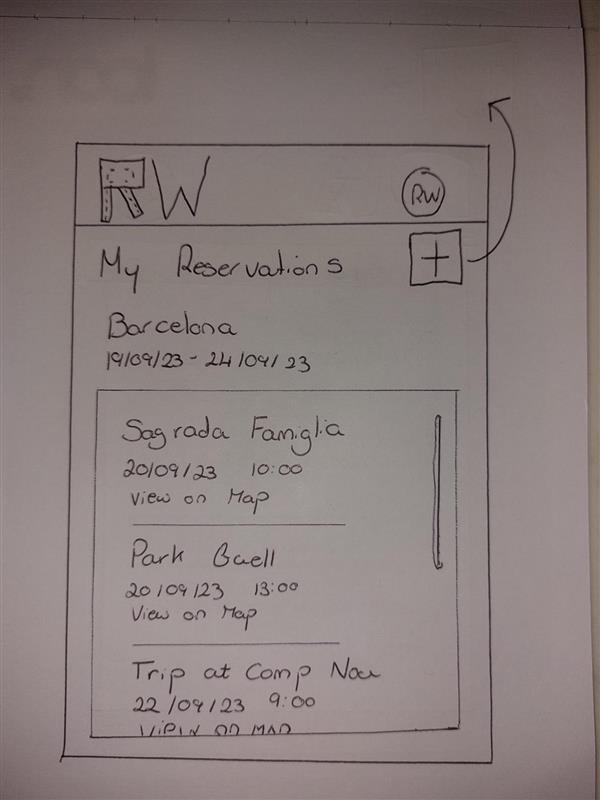 RW
RW
My Reservations
+
Barcelona
19/09/23 - 24/09/23
Sagrada Famiglia
20/09/23 10:00
View on Map
Park Guell
20/09/23 13:00
View on Map
Trip at Comp Nou
22/09/23 9:00
View on Map